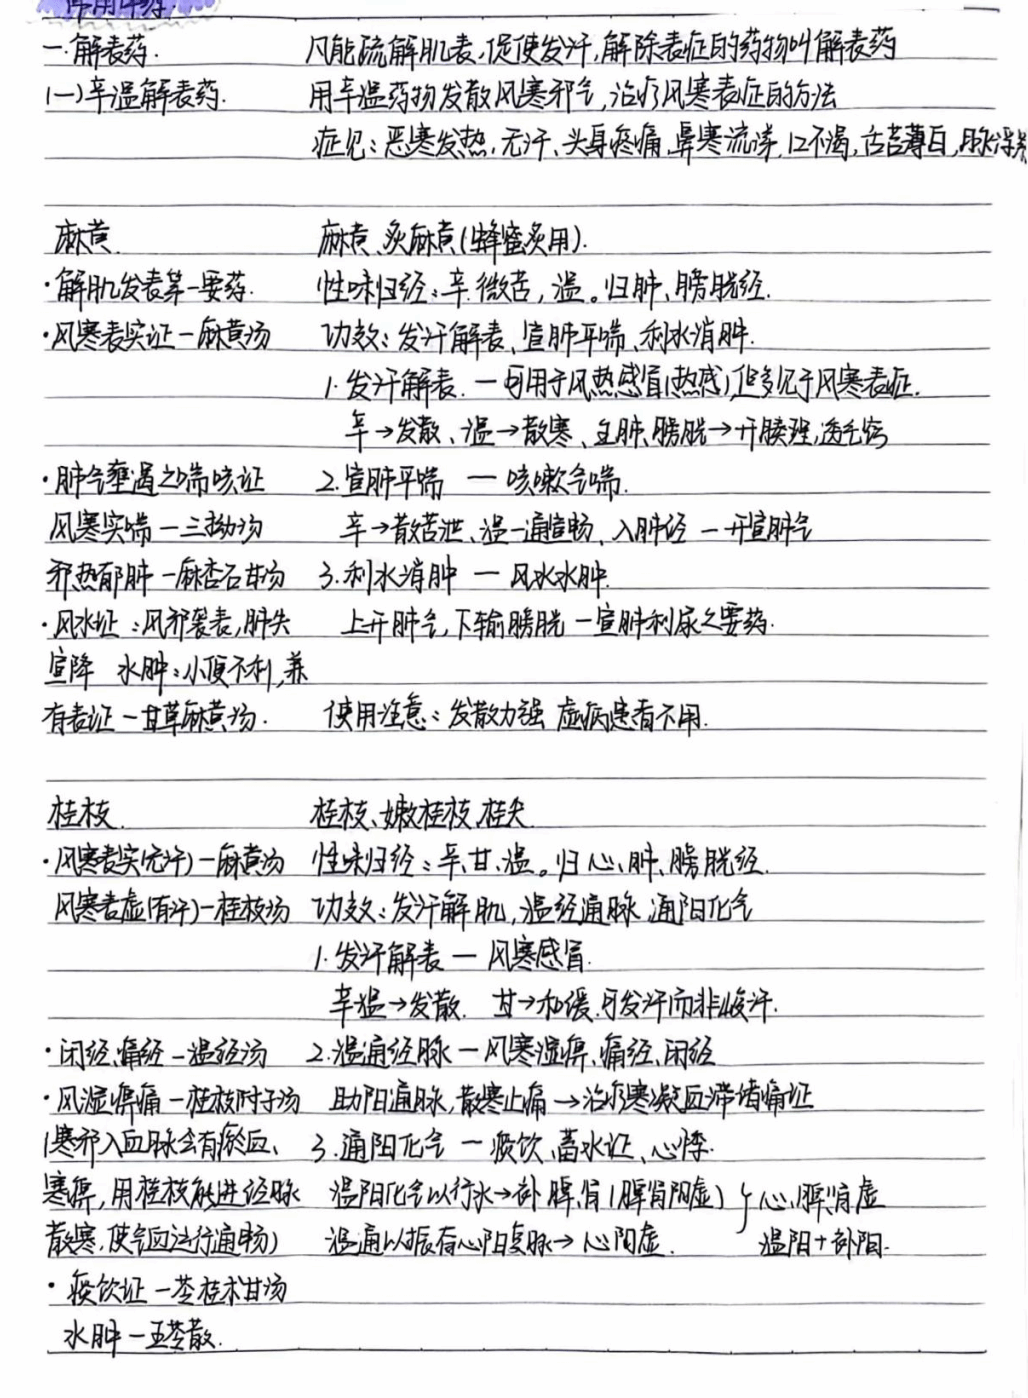 常用中药.
一.解表药. 凡能疏解肌表,促使发汗,解除表症的药物叫解表药
(一)辛温解表药. 用辛温药物发散风寒邪气,治疗风寒表症的方法
症见:恶寒发热,无汗、头身疼痛,鼻塞流涕,口不渴,舌苔薄白,脉浮紧
麻黄. 麻黄、炙麻黄(蜂蜜炙用).
·解肌发表第一要药. 性味归经:辛.微苦,温。归肺、膀胱经.
·风寒表实证-麻黄汤 功效:发汗解表、宣肺平喘、利水消肿.
1.发汗解表.一可用于风热感冒(热感),但多见于风寒表症.
辛→发散、温→散寒、主肺、膀胱→开腠理,透毛窍
·肺气壅遏之喘咳证 2.宣肺平喘 一 咳嗽气喘.
风寒实喘一三拗汤 辛→散苦泄、温一通宣畅、入肺经 一开宣肺气
邪热郁肺-麻杏石甘汤 3.利水消肿 一 风水水肿.
·风水证:风邪袭表,肺失 上开肺气,下输膀胱一宣肺利尿之要药.
宣降 水肿:小便不利,兼
有表证-甘草麻黄汤. 使用注意:发散力强 虚病患者不用.
桂枝. 桂枝、嫩桂枝、桂尖
·风寒表实(无汗)-麻黄汤 性味归经:辛、甘、温。归心、肺、膀胱经.
风寒表虚(有汗)-桂枝汤 功效:发汗解肌,温经通脉 通阳化气
1.发汗解表一 风寒感冒.
辛温→发散. 甘→和缓.可发汗而非峻汗.
·闭经、痛经-温经汤 2.温通经脉一风寒湿痹、痛经、闭经
·风湿痹痛-桂枝附子汤 助阳通脉,散寒止痛→治疗寒凝血滞诸痛证
(寒邪入血脉会有瘀血、 3.通阳化气 一 痰饮、蓄水证、心悸.
寒痹,用桂枝能进经脉 温阳化气以行水→补脾、肾(脾肾阳虚) }心、脾、肾虚
散寒,使气血运行通畅) 温通以振奋心阳复脉→心阳虚. 温阳+补阳.
·痰饮证-苓桂术甘汤
水肿-五苓散.